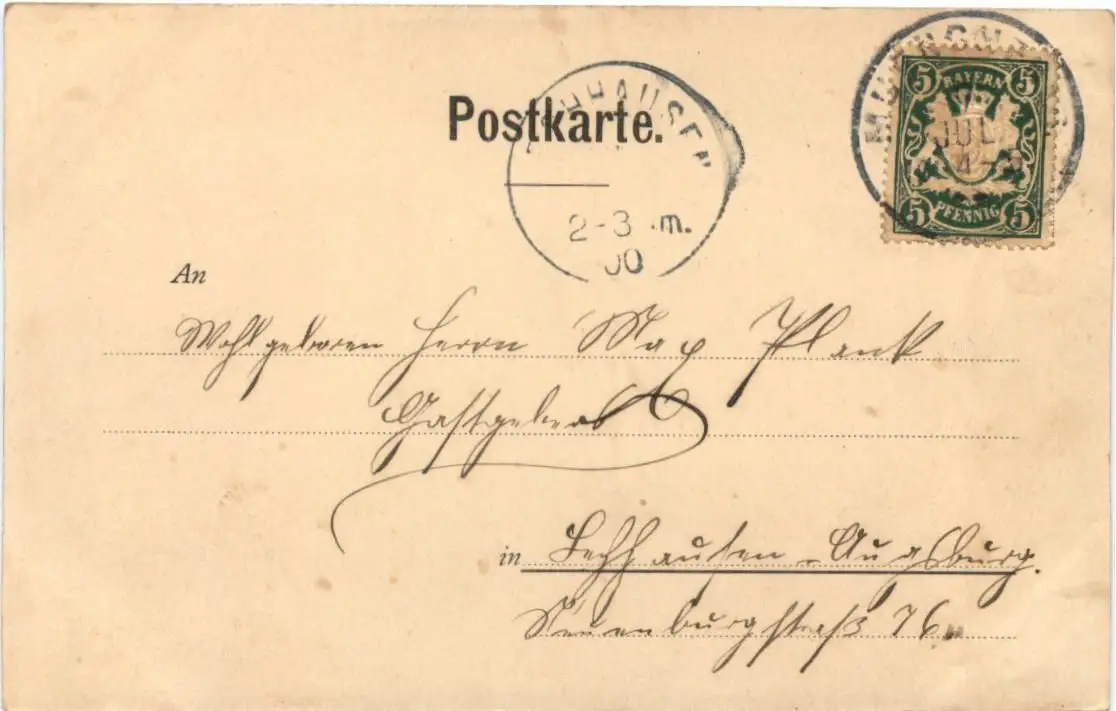 Postkarte.
HHAUSEN
2-3 .m.
00
5 BAYERN 5
JUL
4-5
5 PFENNIG 5
An
Wohlgeboren Herrn Max Plank
Gastgebers
in Lechhausen-Augsburg.
Neuenburgstraß 76